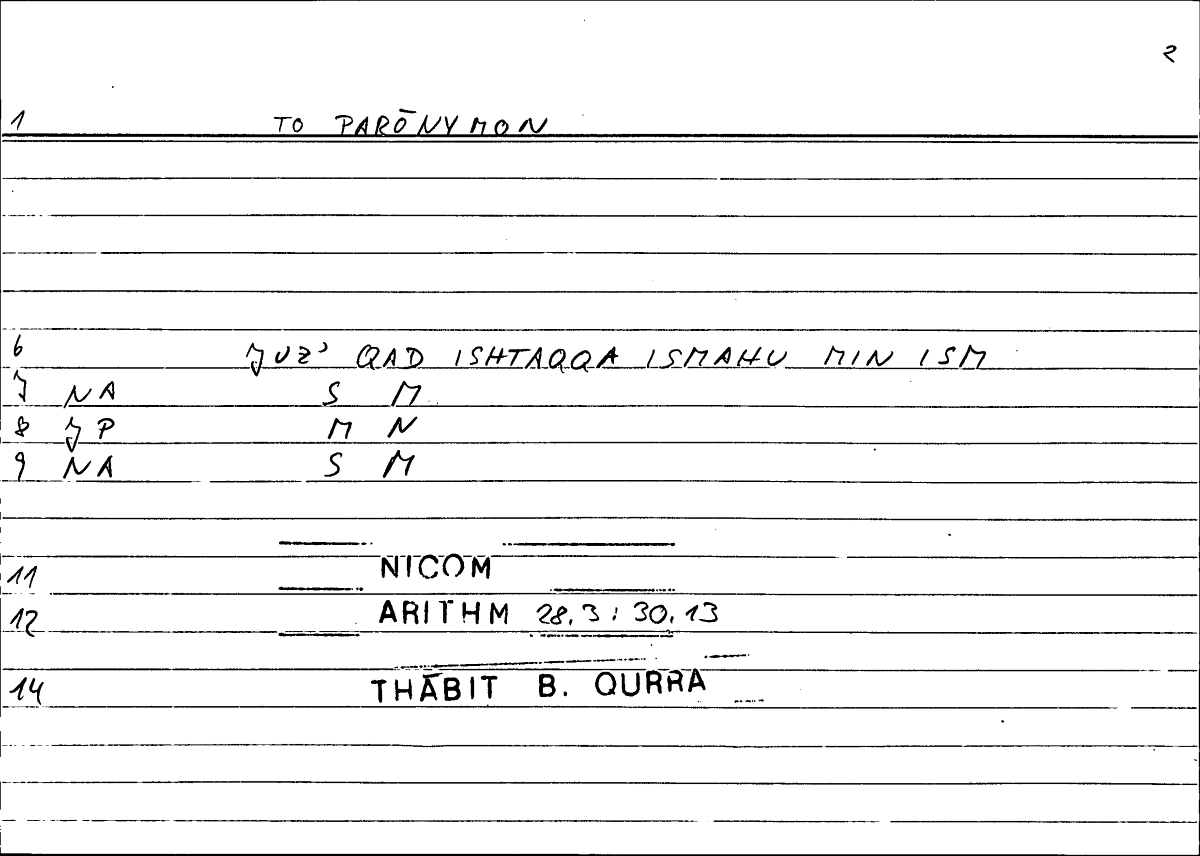 2
1 TO PARŌNYMON
6 JUZʾ QAD ISHTAQQA ISMAHU MIN ISM
7 NA S M
8 JP M N
9 NA S M
11 NICOM
12 ARITHM 28.3 : 30.13
14 THĀBIT B. QURRA